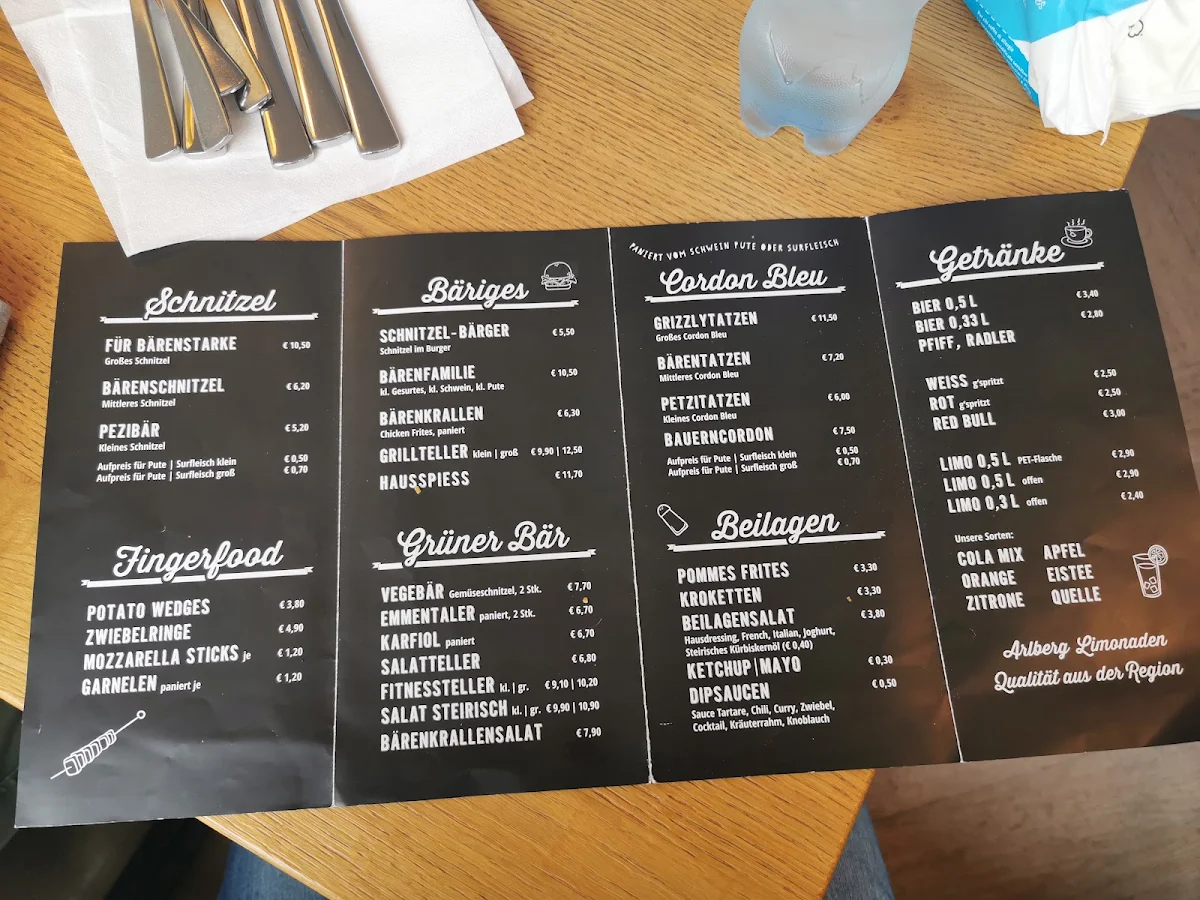 Schnitzel
FÜR BÄRENSTARKE € 10,50
Großes Schnitzel
BÄRENSCHNITZEL € 6,20
Mittleres Schnitzel
PEZIBÄR € 5,20
Kleines Schnitzel
Aufpreis für Pute | Surfleisch klein € 0,50
Aufpreis für Pute | Surfleisch groß € 0,70
Fingerfood
POTATO WEDGES € 3,80
ZWIEBELRINGE € 4,90
MOZZARELLA STICKS je € 1,20
GARNELEN paniert je € 1,20
Bäriges
SCHNITZEL-BÄRGER € 5,50
Schnitzel im Burger
BÄRENFAMILIE € 10,50
kl. Gesurtes, kl. Schwein, kl. Pute
BÄRENKRALLEN € 6,30
Chicken Frites, paniert
GRILLTELLER klein | groß € 9,90 | 12,50
HAUSSPIESS € 11,70
Grüner Bär
VEGEBÄR Gemüseschnitzel, 2 Stk. € 7,70
EMMENTALER paniert, 2 Stk. € 6,70
KARFIOL paniert € 6,70
SALATTELLER € 6,80
FITNESSTELLER kl. | gr. € 9,10 | 10,20
SALAT STEIRISCH kl. | gr. € 9,90 | 10,90
BÄRENKRALLENSALAT € 7,90
PANIERT VOM SCHWEIN PUTE ODER SURFLEISCH
Cordon Bleu
GRIZZLYTATZEN € 11,50
Großes Cordon Bleu
BÄRENTATZEN € 7,20
Mittleres Cordon Bleu
PETZITATZEN € 6,00
Kleines Cordon Bleu
BAUERNCORDON € 7,50
Aufpreis für Pute | Surfleisch klein € 0,50
Aufpreis für Pute | Surfleisch groß € 0,70
Beilagen
POMMES FRITES € 3,30
KROKETTEN € 3,30
BEILAGENSALAT € 3,80
Hausdressing, French, Italian, Joghurt,
Steirisches Kürbiskernöl (€ 0,40)
KETCHUP|MAYO € 0,30
DIPSAUCEN € 0,50
Sauce Tartare, Chili, Curry, Zwiebel,
Cocktail, Kräuterrahm, Knoblauch
Getränke
BIER 0,5 L € 3,40
BIER 0,33 L € 2,80
PFIFF, RADLER
WEISS g'spritzt € 2,50
ROT g'spritzt € 2,50
RED BULL € 3,00
LIMO 0,5 L PET-Flasche € 2,90
LIMO 0,5 L offen € 2,90
LIMO 0,3 L offen € 2,40
Unsere Sorten:
COLA MIX APFEL
ORANGE EISTEE
ZITRONE QUELLE
Arlberg Limonaden
Qualität aus der Region